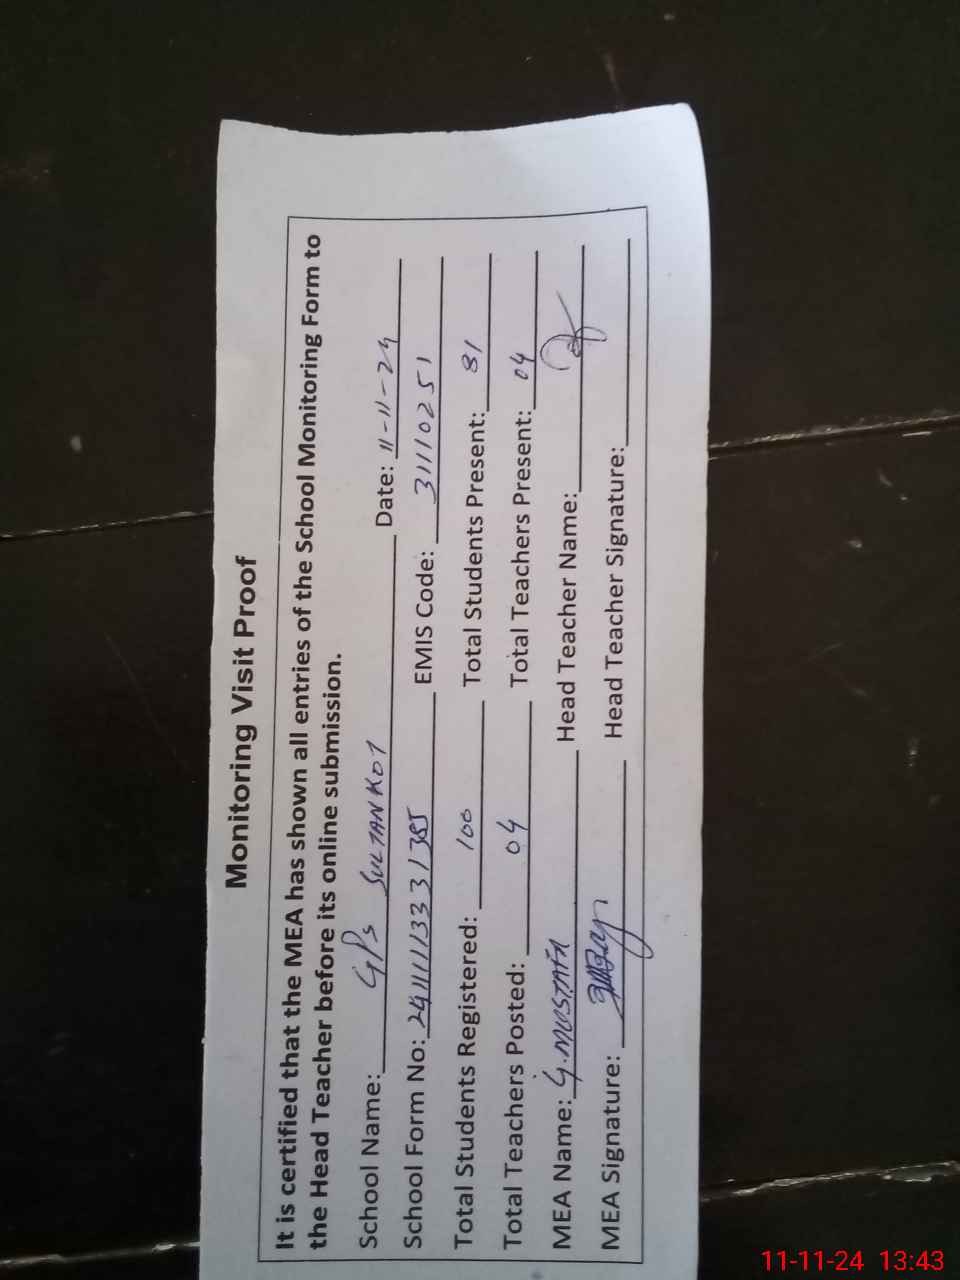 Monitoring Visit Proof
It is certified that the MEA has shown all entries of the School Monitoring Form to
the Head Teacher before its online submission.
School Name: GPS SULTANKOT Date: 11-11-24
School Form No: 2411113331385 EMIS Code: 31110251
Total Students Registered: 100 Total Students Present: 81
Total Teachers Posted: 04 Total Teachers Present: 04
MEA Name: G.MUSTAFA Head Teacher Name:
MEA Signature: Head Teacher Signature:
11-11-24 13:43